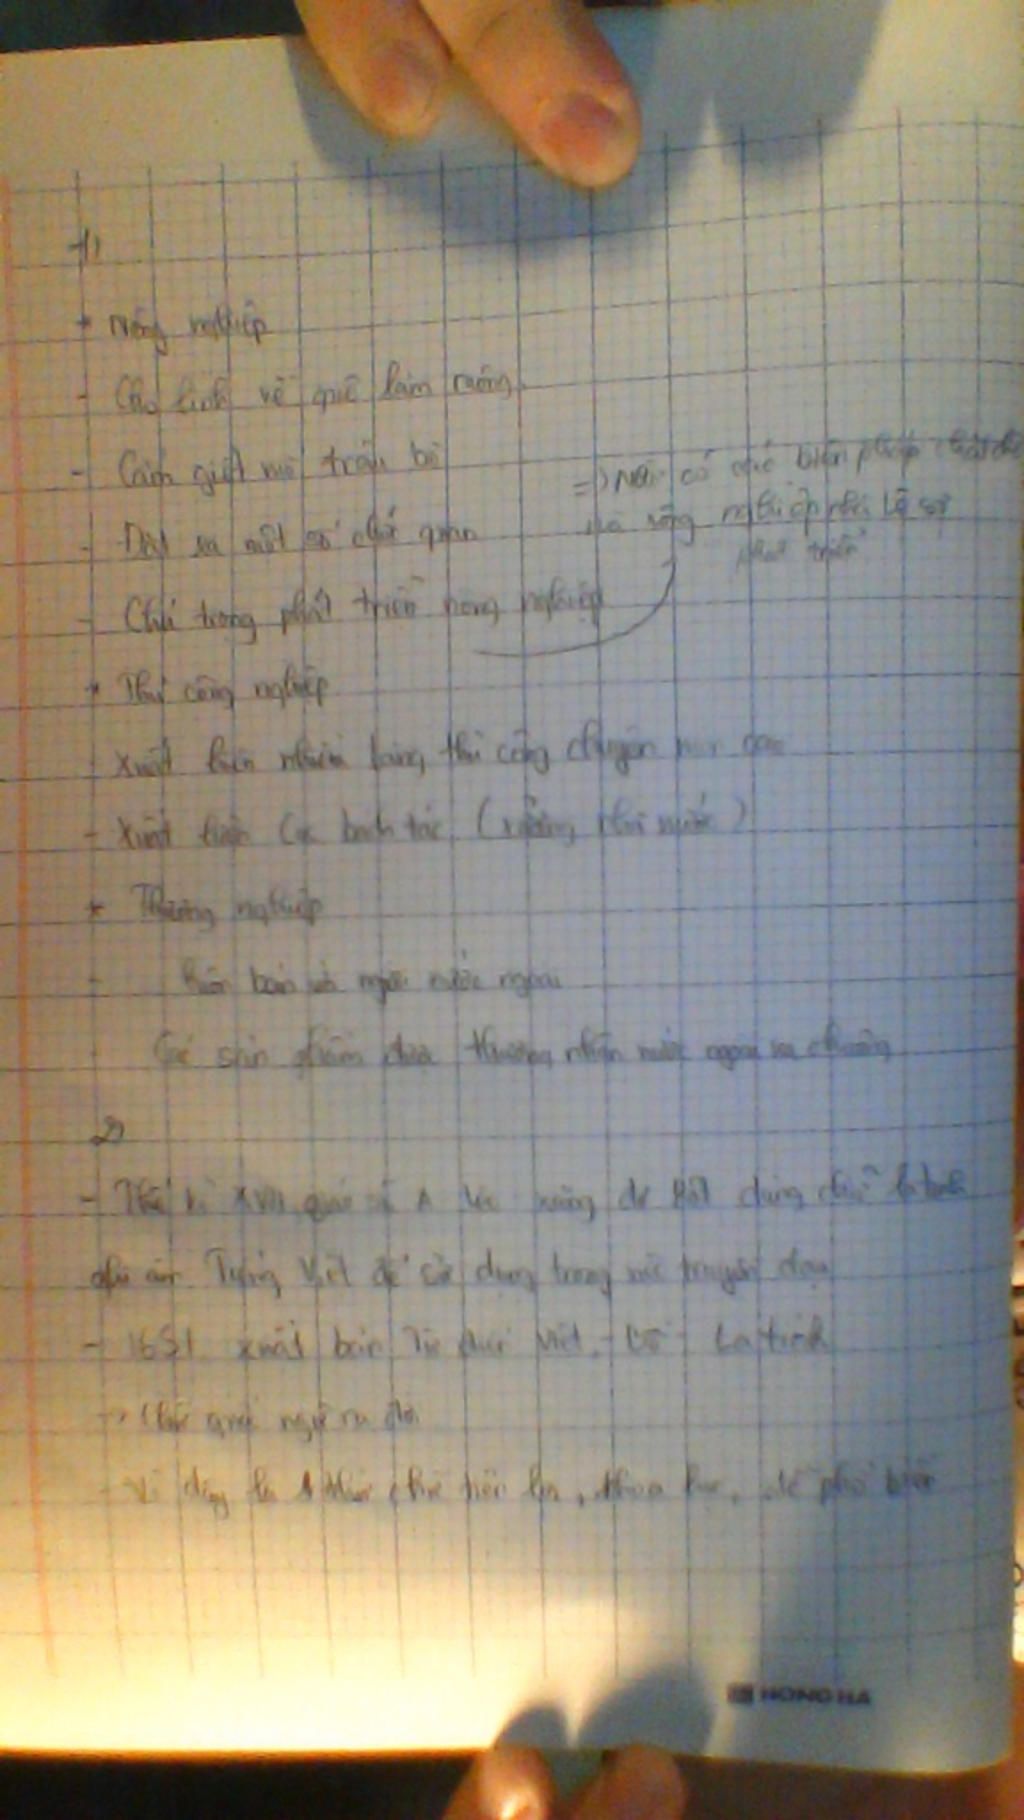 1)
* Nông nghiệp
- Cho lính về quê làm ruộng
- Cấm giết mổ trâu bò
- Đặt ra một số chức quan
- Chú trọng phát triển nông nghiệp
=> Nhờ có các biện pháp
nông nghiệp
phát triển
* Thủ công nghiệp
Xuất hiện nhiều làng thủ công chuyên
- Xuất hiện các bách tác (xưởng nhà nước)
* Thương nghiệp
- Buôn bán với người nước ngoài
- Các sản phẩm được thương nhân nước ngoài ưa chuộng
2)
- Thế kỉ XVII giáo sĩ A lếc xăng đơ Rốt dùng chữ latinh
ghi âm Tiếng Việt để sử dụng trong việc truyền đạo
- 1651 xuất bản Từ điển Việt - Bồ - Latinh
-> Chữ quốc ngữ ra đời
- Vì đây là chữ tiện lợi, khoa học, dễ phổ biến
HONG HA